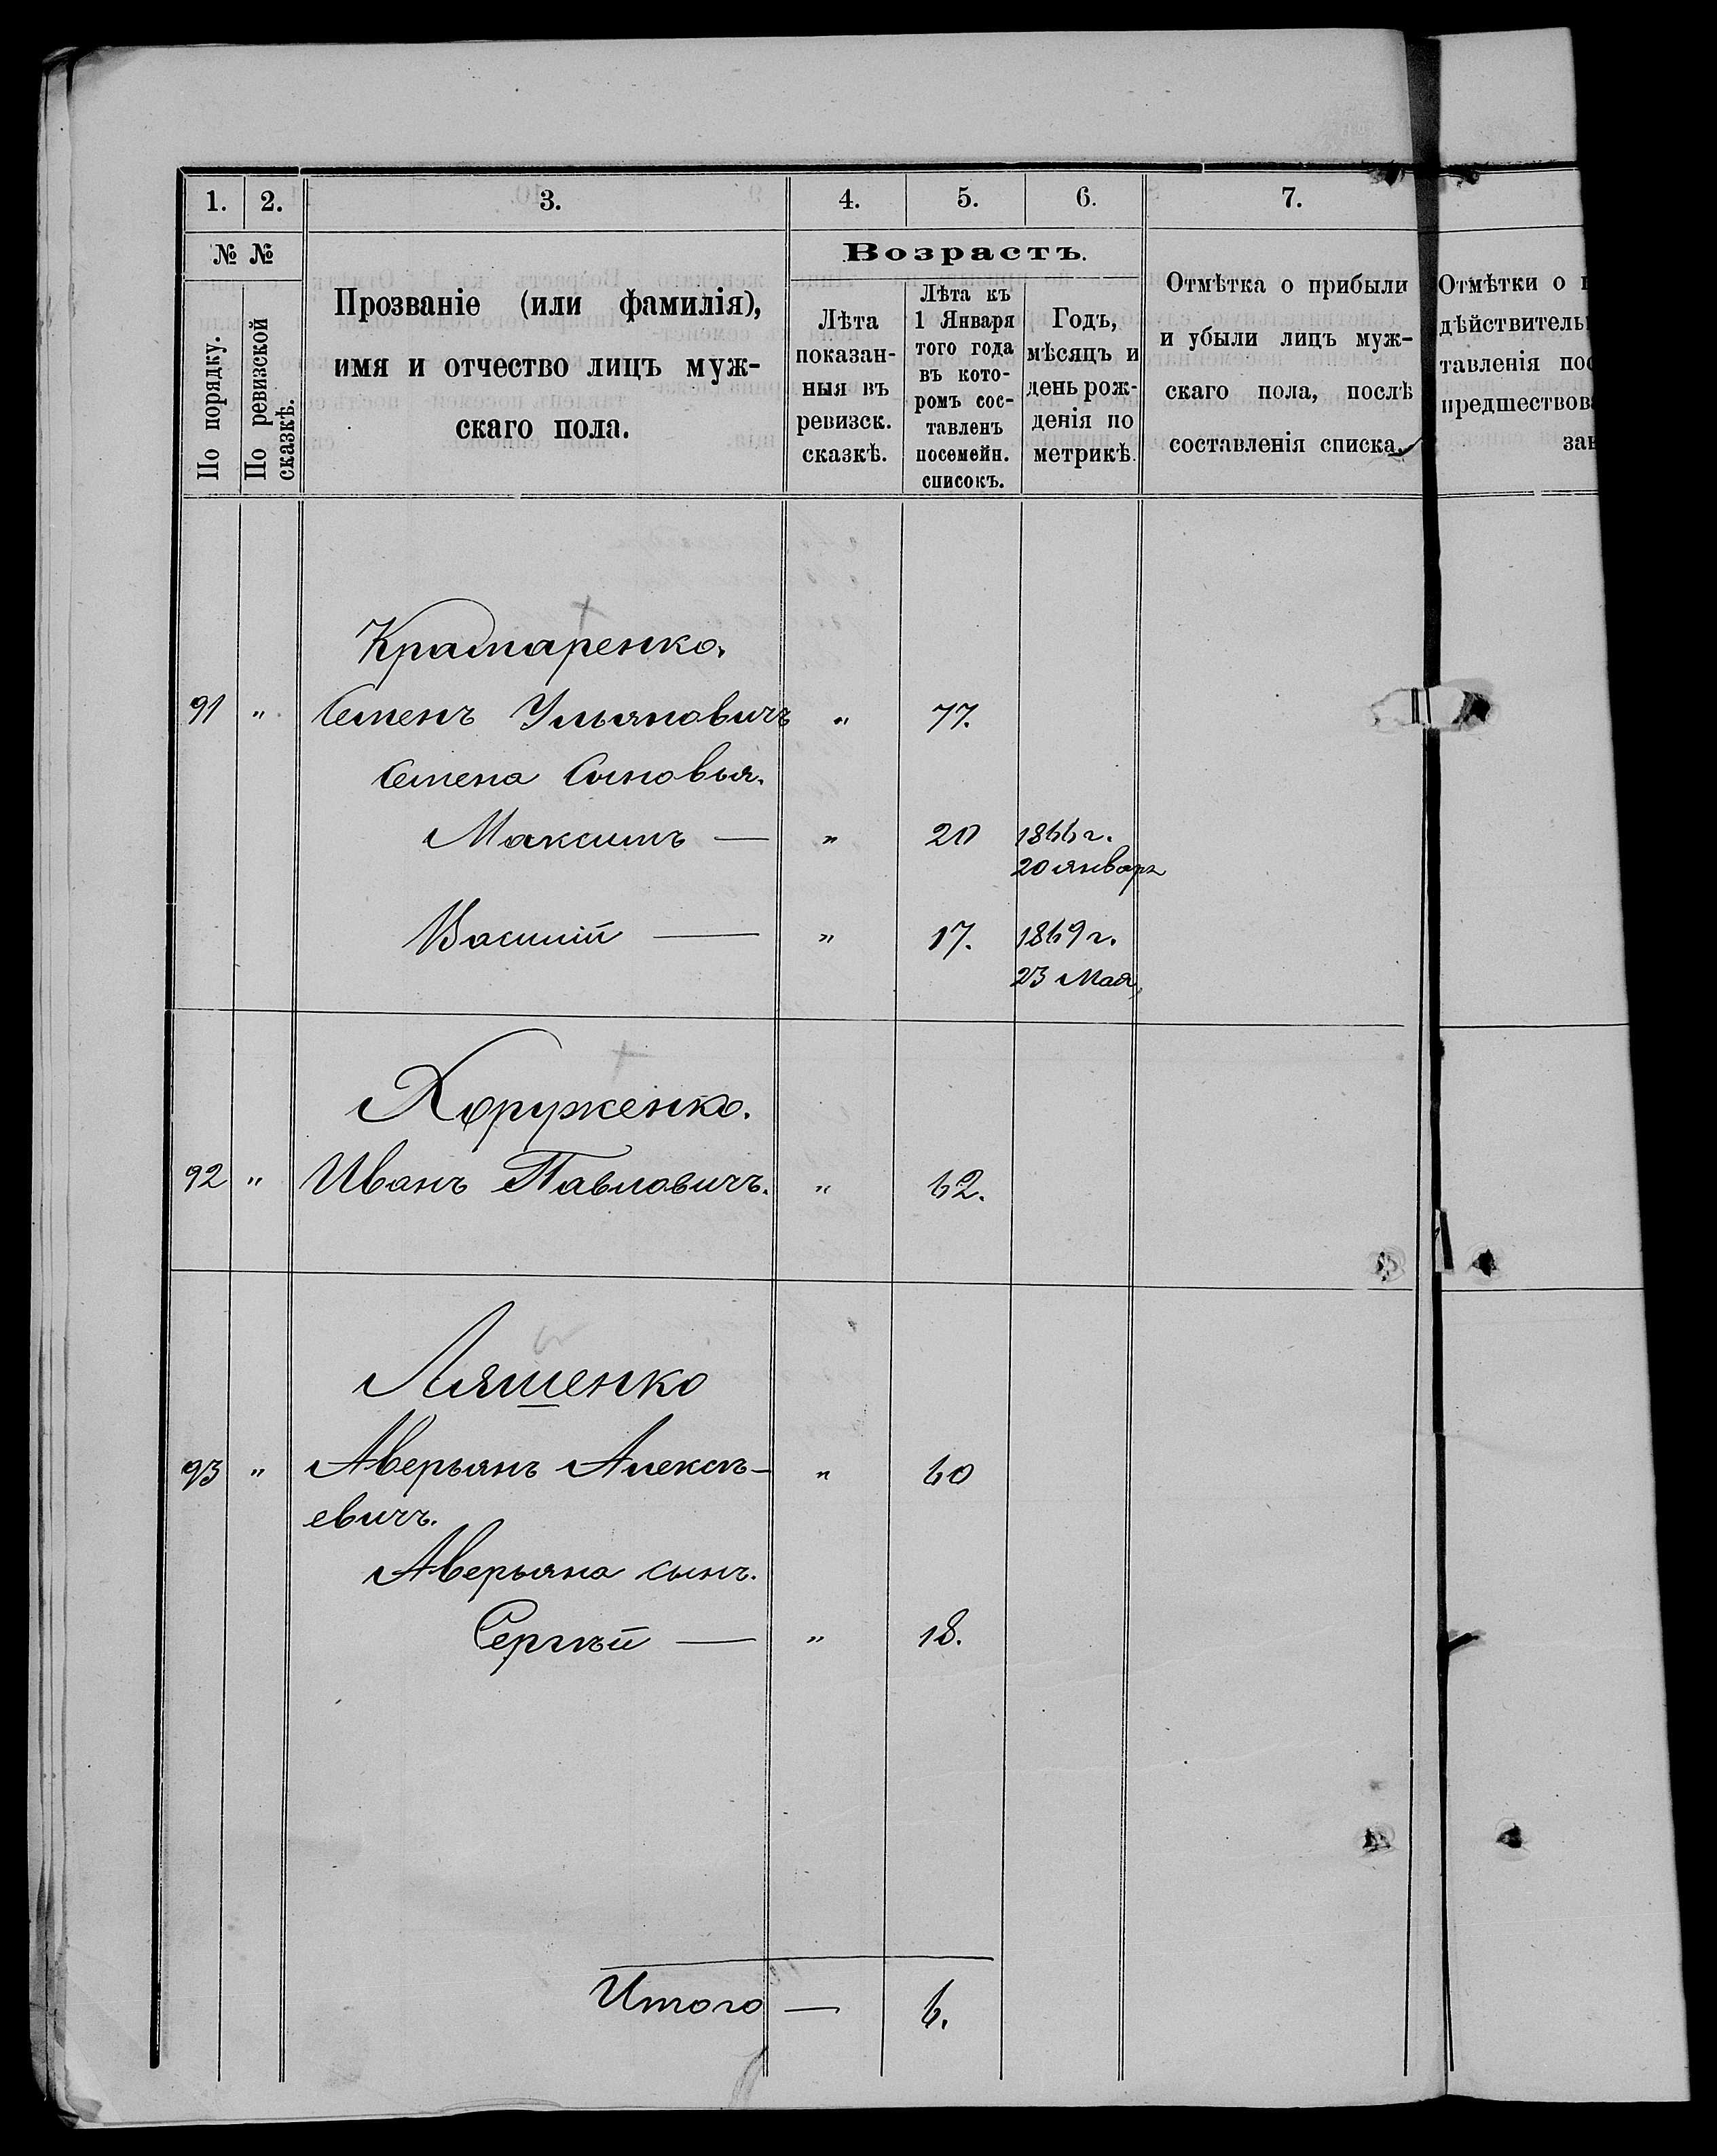 1. 2. 3. 4. 5. 6. 7.
№ № Возрастъ.
По порядку.
По ревизской сказкѣ.
Прозваніе (или фамилія),
имя и отчество лицъ муж-
скаго пола.
Лѣта
показан-
ныя въ
ревизск.
сказкѣ.
Лѣта къ
1 Января
того года
въ кото-
ромъ сос-
тавленъ
посемейн.
списокъ.
Годъ,
мѣсяцъ и
день рож-
денія по
метрикѣ.
Отмѣтка о прибыли
и убыли лицъ муж-
скаго пола, послѣ
составленія списка.
Отмѣтки о
дѣйствитель
тавленія пос
предшествов
зак
Крамаренко.
91 " Семенъ Ульяновичъ " 77.
Семена Сыновья.
Максимъ — " 20 1866 г.
20 января
Василій — " 17. 1869 г.
23 Мая,
Хоруженко.
92 " Иванъ Павловичъ. " 62.
Ляшенко
93 " Аверьянъ Алексѣ- " 60
евичъ.
Аверьяна сынъ.
Сергѣй — " 18.
Итого — 6.